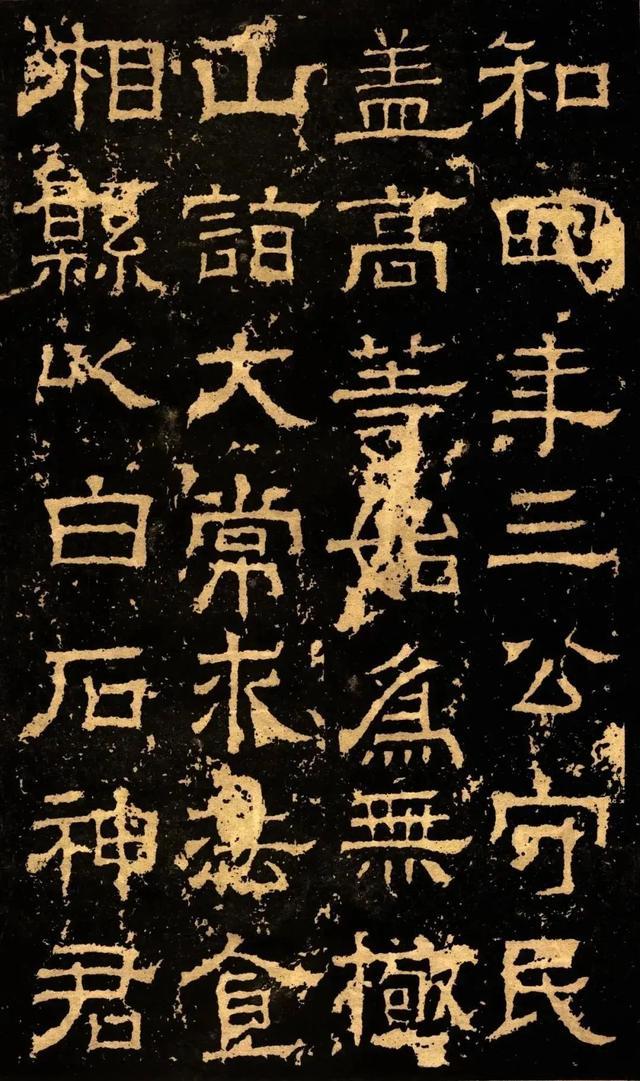 和四年三公守民
盖高等始為無極
山詣大常求法食
相縣以白石神君